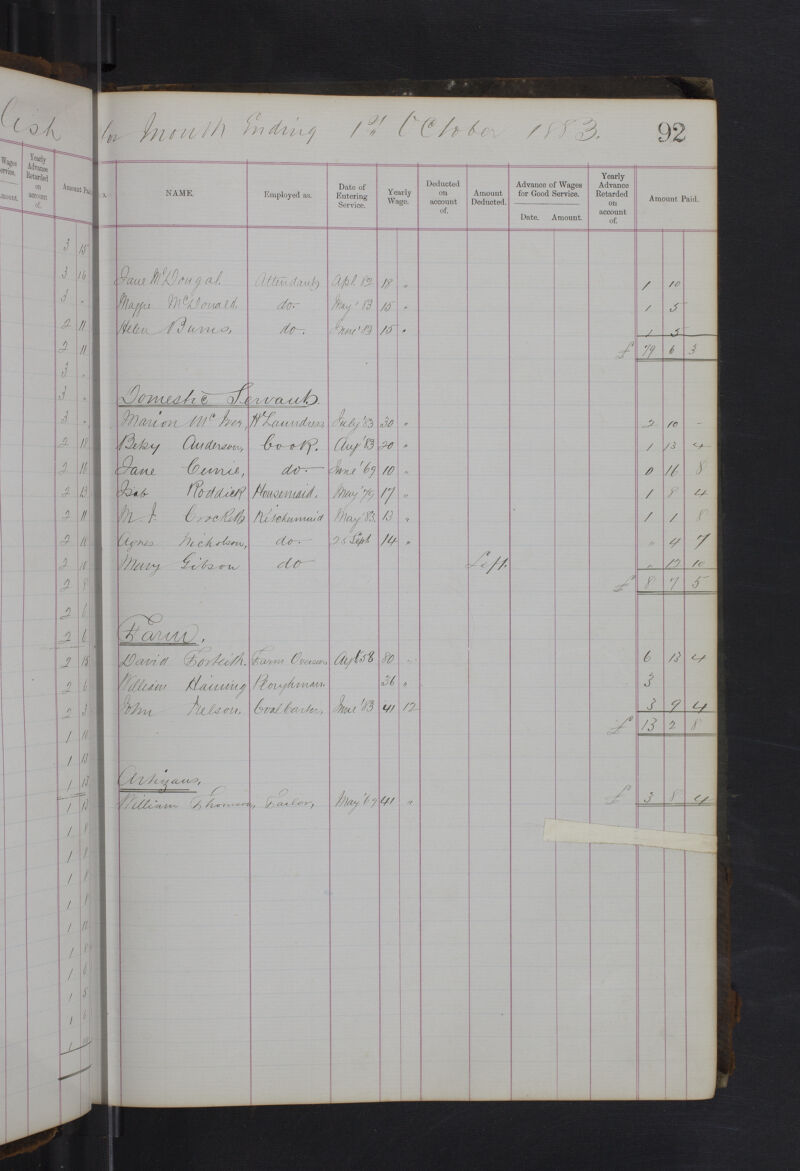 lish
Wages
Service.
Amount.
Yearly
Advance
Retarded
on
account
of.
Amount Paid
3 15
3 16
3 "
2 11
2 11
3 "
3 "
3 "
2 18
2 11
2 13
2 11
2 11
2 10
2 8
2 6
2 6
2 15
2 6
2 3
1 13
1 13
for Month Ending 1st October 1883. 92
NAME. Employed as. Date of Entering Service. Yearly Wage. Deducted on account of. Amount Deducted. Advance of Wages for Good Service. Date. Amount. Yearly Advance Retarded on account of. Amount Paid.
Jane McDougal. Attendants Apl 82 18 " 1 10
Maggie McDonald. do. May '83 15 " 1 5
Helen Burns. do. June '83 15 " 1 5
£ 79 6 3
Domestic Servants.
Marion McIver, Hd Laundress July '83 30 " 2 10 -
Betsy Anderson, Cook. Aug '83 20 " 1 13 4
Jane do. June '69 10 " 0 16 8
Isab Roddick Housemaid. May '79 17 " 1 8 4
M. J. Crockett Kitchenmaid May '83. 13 " 1 1 8
Agnes Nicholson, do. 25 Sept 14 " " 4 7
Mary Gibson do Left. " 12 10
£ 8 7 5
Farm.
David Forteith. Farm Overseer Augt 58 80 " 6 13 4
William Haining Ploughman 36 " 3
John Nelson. Coal Carter, June '83 41 12 3 9 4
£ 13 2 8
Artizans.
William Thomson, Tailor, May '69 41 " £ 3 8 4